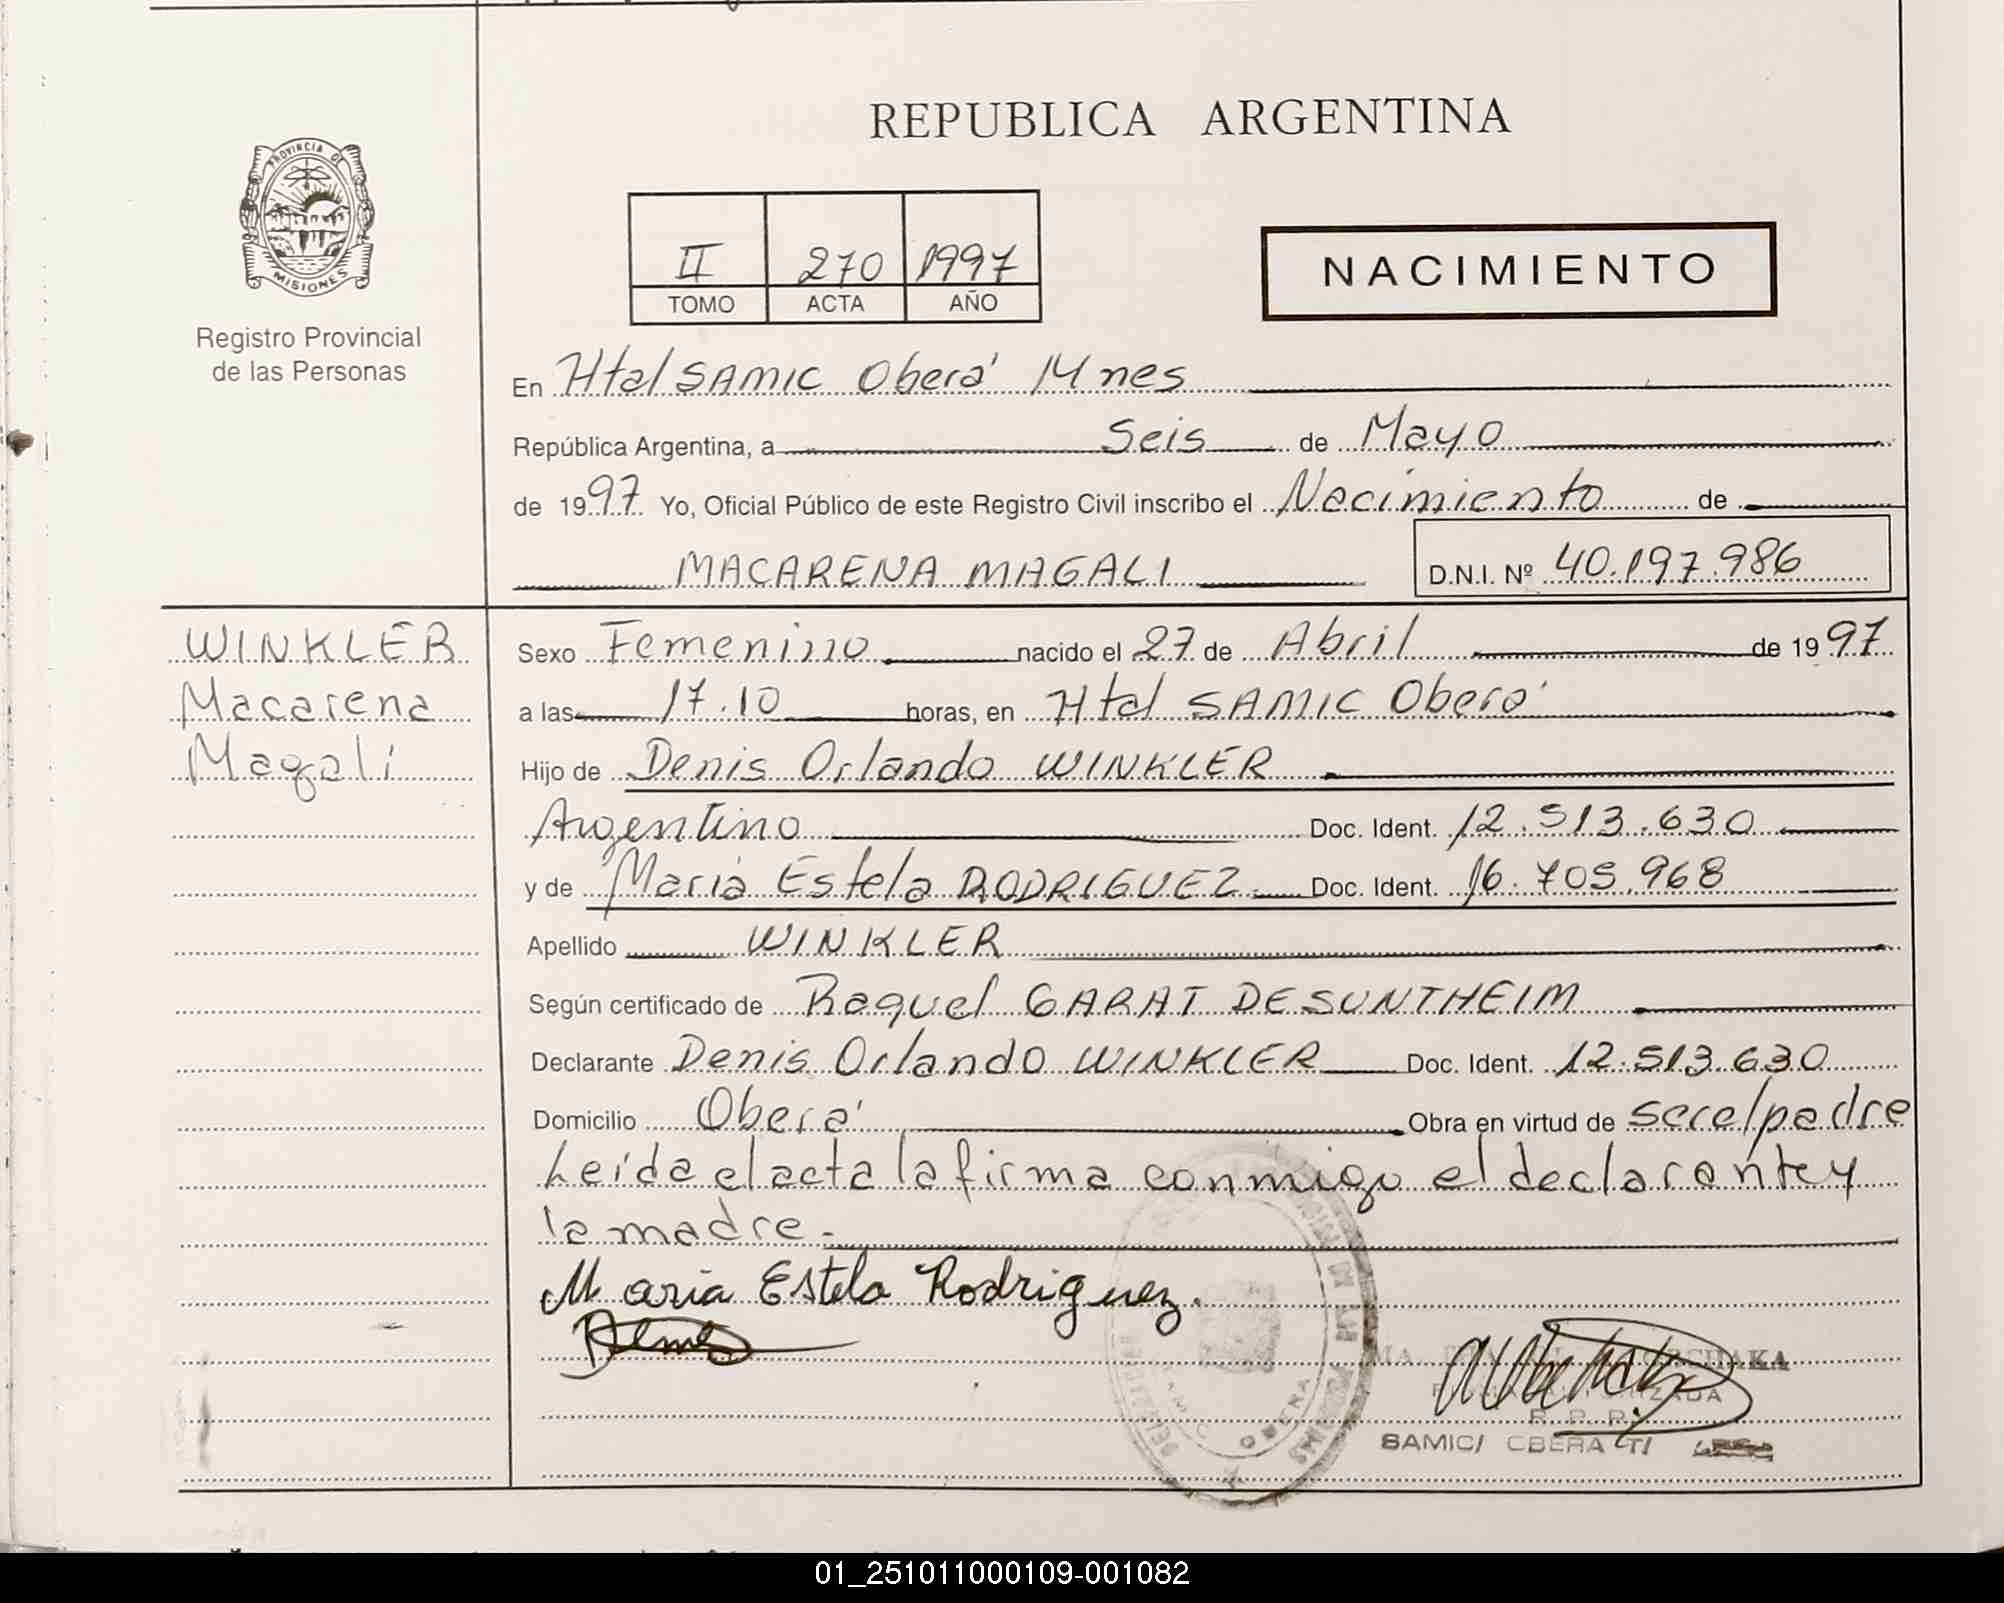 REPUBLICA ARGENTINA
PROVINCIA DE
MISIONES
Registro Provincial
de las Personas
II 270 1997
TOMO ACTA AÑO
NACIMIENTO
En Htal SAMIC Oberá Mnes
República Argentina, a Seis de Mayo
de 1997 Yo, Oficial Público de este Registro Civil inscribo el Nacimiento de
MACARENA MAGALI D.N.I. Nº 40.197.986
WINKLER
Macarena
Magali
Sexo Femenino nacido el 27 de Abril de 1997
a las 17.10 horas, en Htal SAMIC Oberá
Hijo de Denis Orlando WINKLER
Argentino Doc. Ident. 12.513.630
y de Maria Estela RODRIGUEZ Doc. Ident. 16.705.968
Apellido WINKLER
Según certificado de Raquel GARAT DESUNTHEIM
Declarante Denis Orlando WINKLER Doc. Ident. 12.513.630
Domicilio Oberá Obra en virtud de ser el padre
Leída el acta la firma conmigo el declarante y
la madre.-
Maria Estela Rodriguez.
R. P. P.
SAMIC/ OBERA
OBERA
01_251011000109-001082